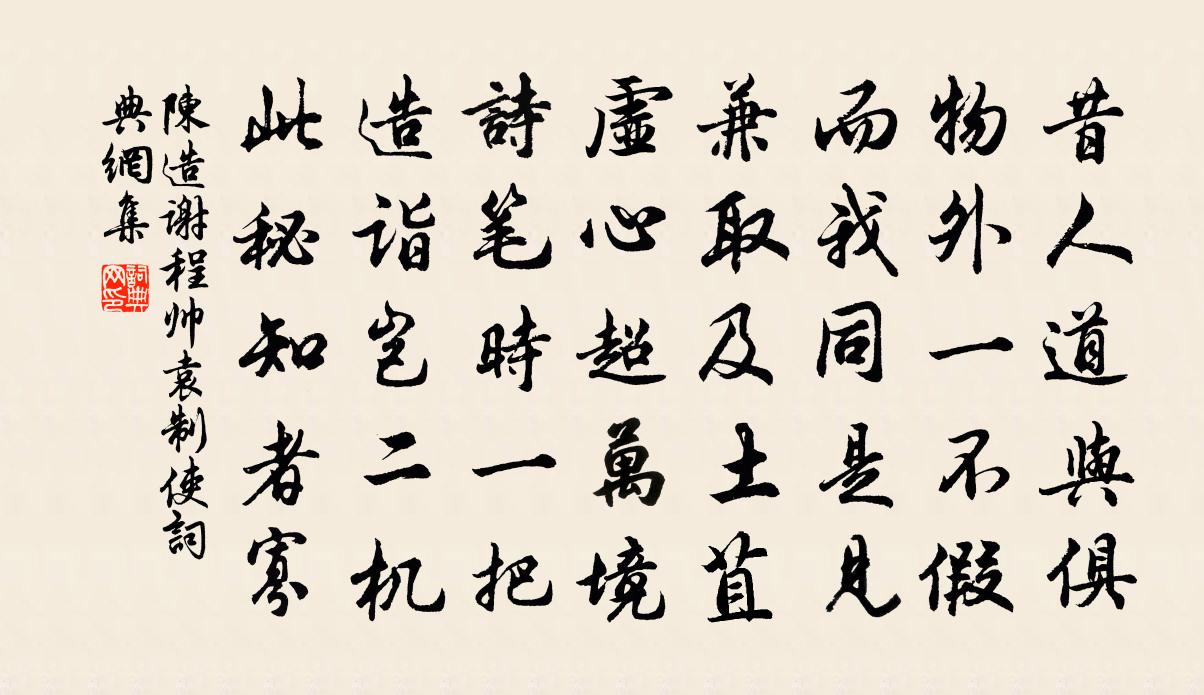 昔人道與俱
物外一不假
而我同是見
兼取及土苴
虛心超萬境
詩笔時一把
造詣岂二机
此秘知者寡
陳造谢程帅袁制使詞
典網集
詞典
网印